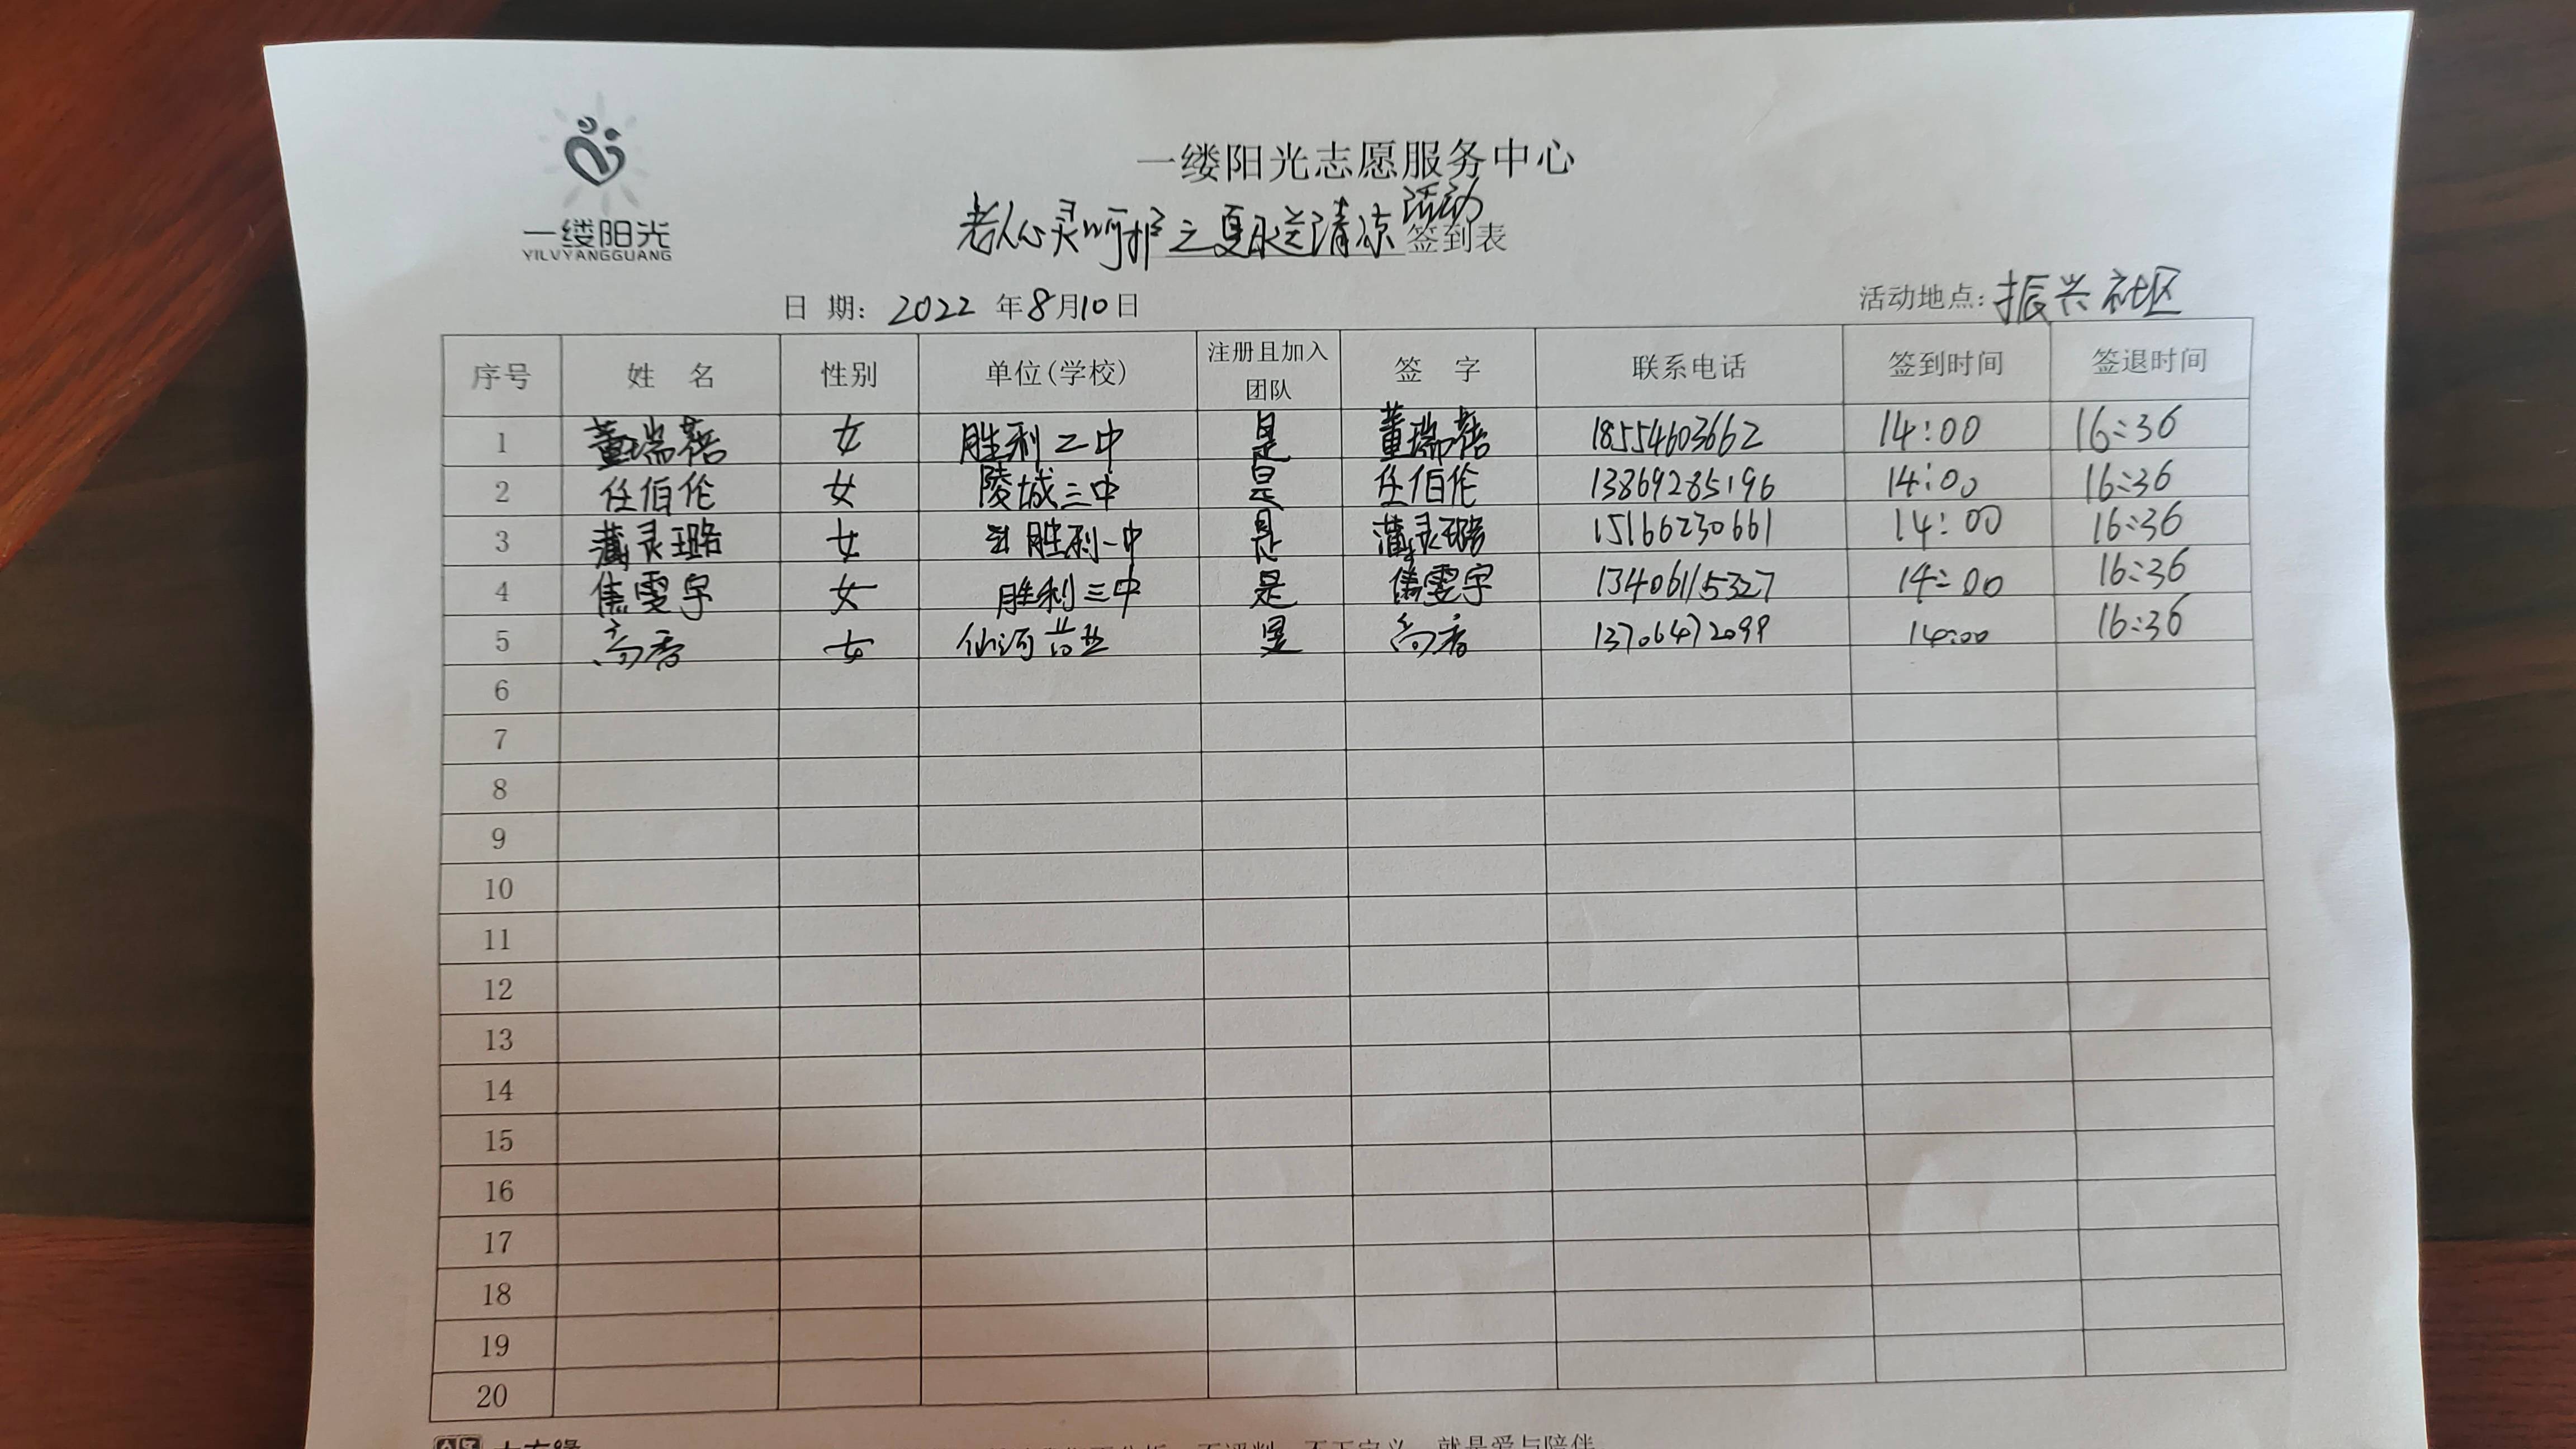 一缕阳光
YILVYANGGUANG
一缕阳光志愿服务中心
活动
老人心灵呵护之夏日送清凉签到表
日 期: 2022 年8月10日
活动地点: 振兴社区
序号 姓 名 性别 单位(学校) 注册且加入团队 签 字 联系电话 签到时间 签退时间
1 董瑞蓓 女 胜利二中 是 董瑞蓓 18554603662 14:00 16:36
2 任伯伦 女 陵城三中 是 任伯伦 13869285196 14:00 16:36
3 灵璐 女 胜利一中 是 灵璐 15166230661 14:00 16:36
4 雯宇 女 胜利三中 是 雯宇 13406115327 14:00 16:36
5 高香 女 仙河 是 高香 13706472099 14:00 16:36
6
7
8
9
10
11
12
13
14
15
16
17
18
19
20
就是爱与陪伴